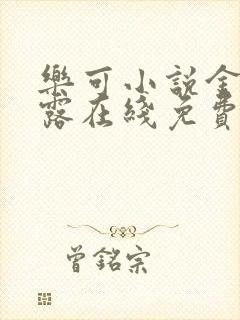 樂可小說金
露在綫免費
曾銘宗